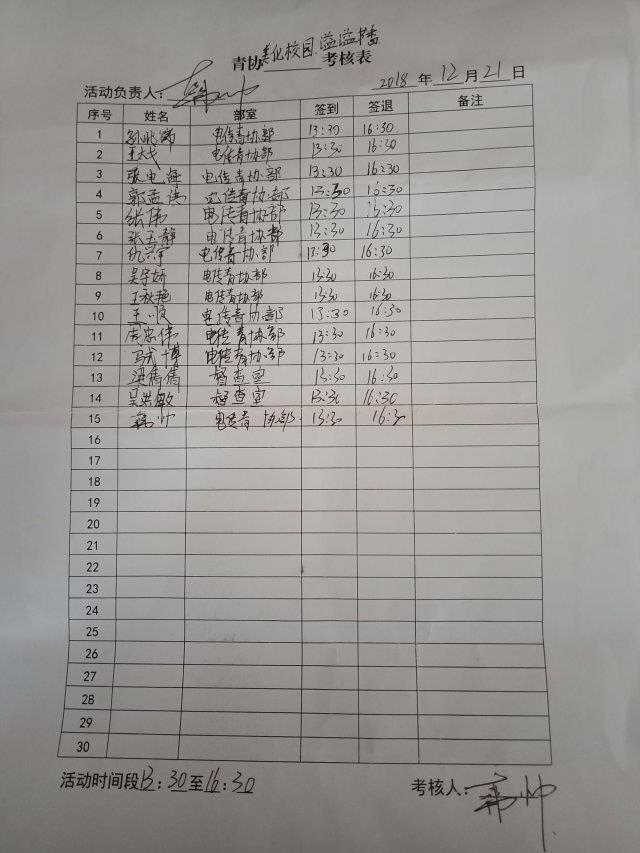 青协美化校园,溢溢书香考核表
活动负责人：
2018年12月21日
序号 姓名 部室 签到 签退 备注
1 电传青协部 13:30 16:30
2 王大戈 电传青协部 13:30 16:30
3 电传青协部 13:30 16:30
4 郭孟 电传青协部 13:30 16:30
5 张伟 电传青协部 13:30 13:30
6 张玉静 电传青协部 13:30 16:30
7 仇兴宇 电传青协部 13:30 16:30
8 吴宇娇 电传青协部 13:30 16:30
9 王秋艳 电传青协部 13:30 16:30
10 王顺 电传青协部 13:30 16:30
11 周忠伟 电传青协部 13:30 16:30
12 冯式博 电传青协部 13:30 16:30
13 梁倩倩 督查室 13:30 16:30
14 吴洪敏 督查室 13:30 16:30
15 电传青协部 13:30 16:30
16
17
18
19
20
21
22
23
24
25
26
27
28
29
30
活动时间段13：30至16：30
考核人：